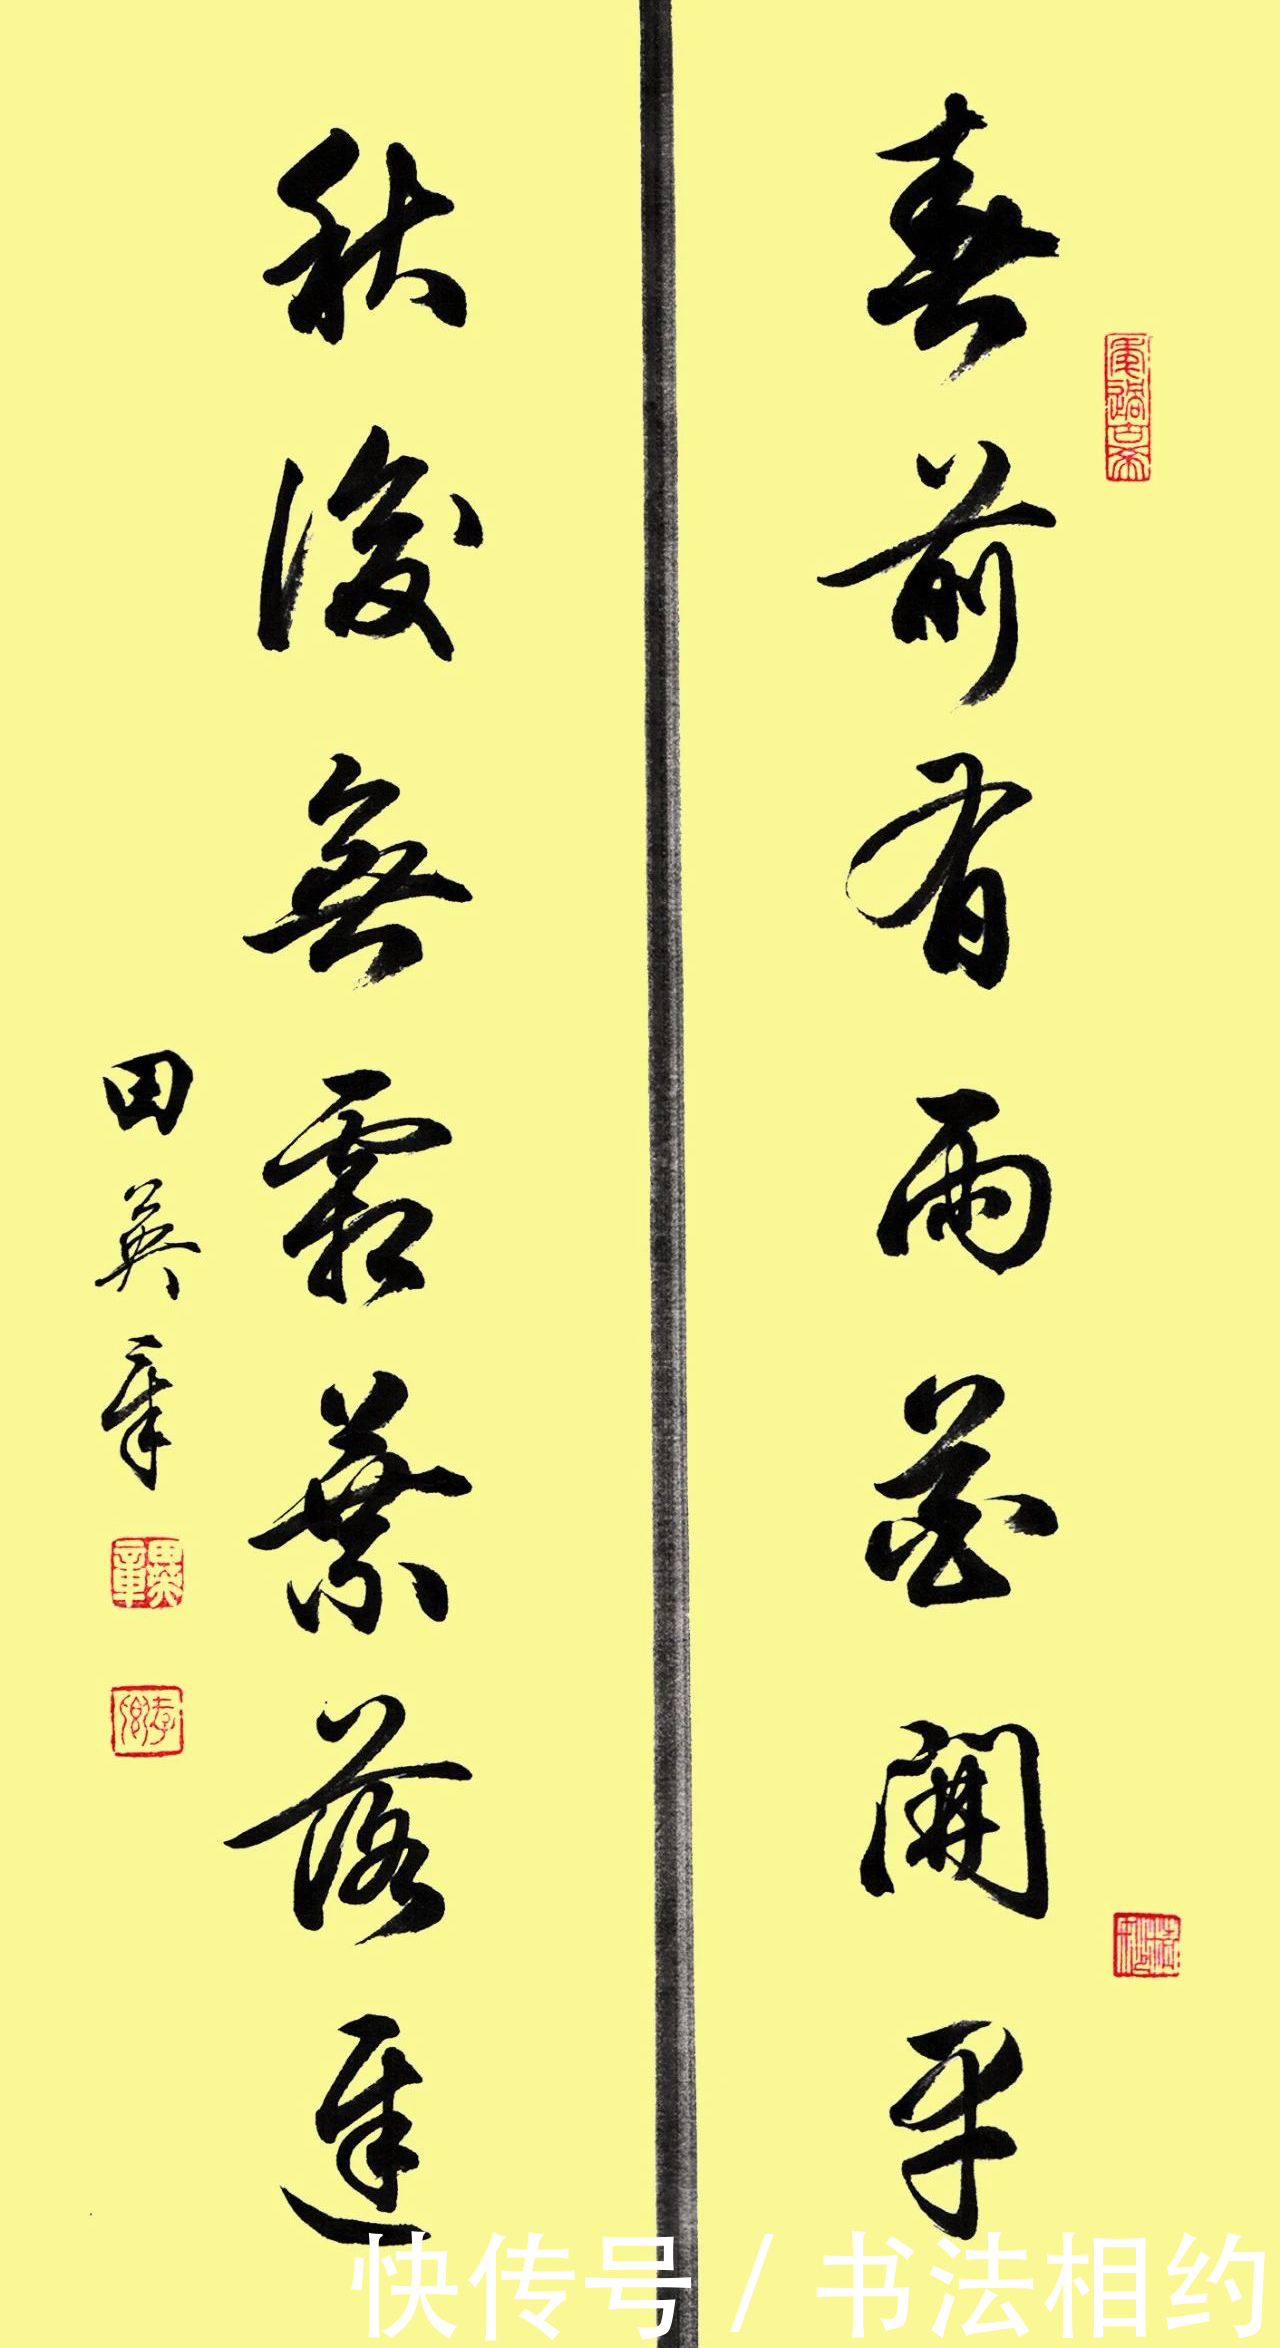 春前有雨花開早
秋後無霜葉落遲
田英章
快传号 / 书法相约